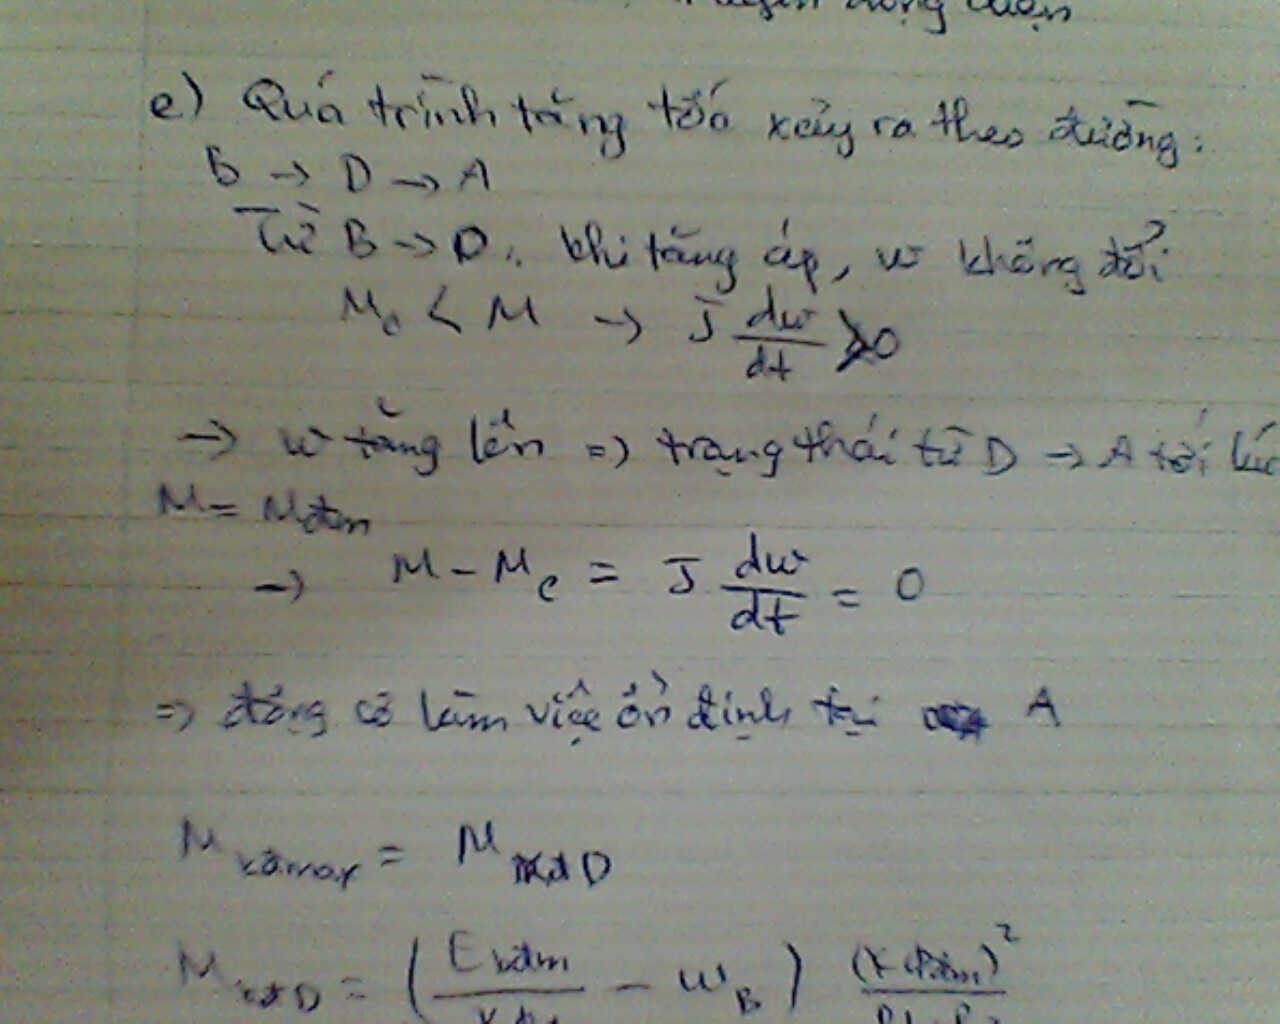 động
e) Quá trình tăng tốc xảy ra theo đường:
B → D → A
Từ B → D, khi tăng áp, w không đổi
Mc < M → J dw/dt > 0
→ w tăng lên => trạng thái từ D → A tới lúc
M = Mđm
→ M - Mc = J dw/dt = 0
=> động cơ làm việc ổn định tại A
M max = M D
M D = ( E / - wB ) ( )²